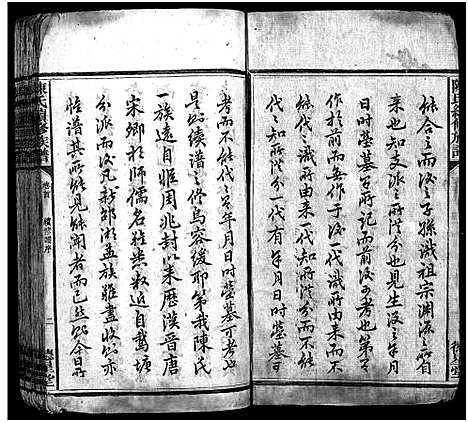 能合之而後之子孫識祖宗淵源之所自
来也知支派之所從分也見生沒之年月
日時塋墓之所記而前後可考也第
作於前而無作于後一代識所由来而不
能代之識所由来一代知所從分而不能
代之知所從分一代有年月日時塋墓可
考而不能代之有年月日時塋墓可考也
是故續譜之修烏容緩耶第我陳氏
一族遠自惟周兆封以来歷漢晉唐
宋鄉於師儒名難悉数近自鵝塘
分派而後凡新邵湖孟族雖盡收然亦
惟譜其所能見能聞者而已然此今日所
陳氏續修族譜
卷首
續修譜序
二